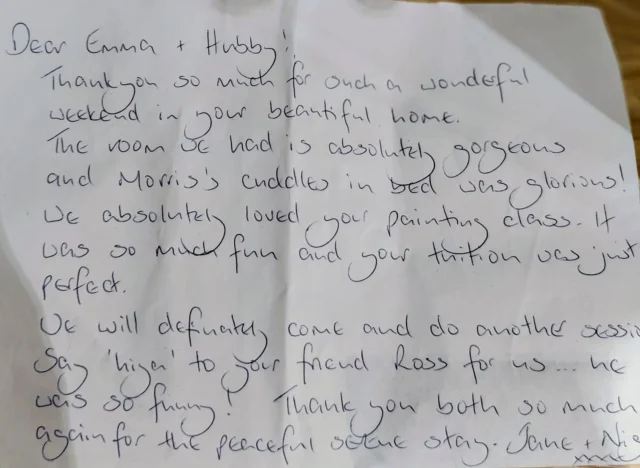 Dear Emma + Hubby!
Thankyou so much for such a wonderful
weekend in your beautiful home.
The room we had is absolutely gorgeous
and Morris's cuddles in bed was glorious!
We absolutely loved your painting class. It
was so much fun and your tuition was just
perfect.
We will definately come and do another sessio
Say 'hiya' to your friend Ross for us... he
was so funny! Thank you both so much
again for the peaceful serene stay. Jane + Nic